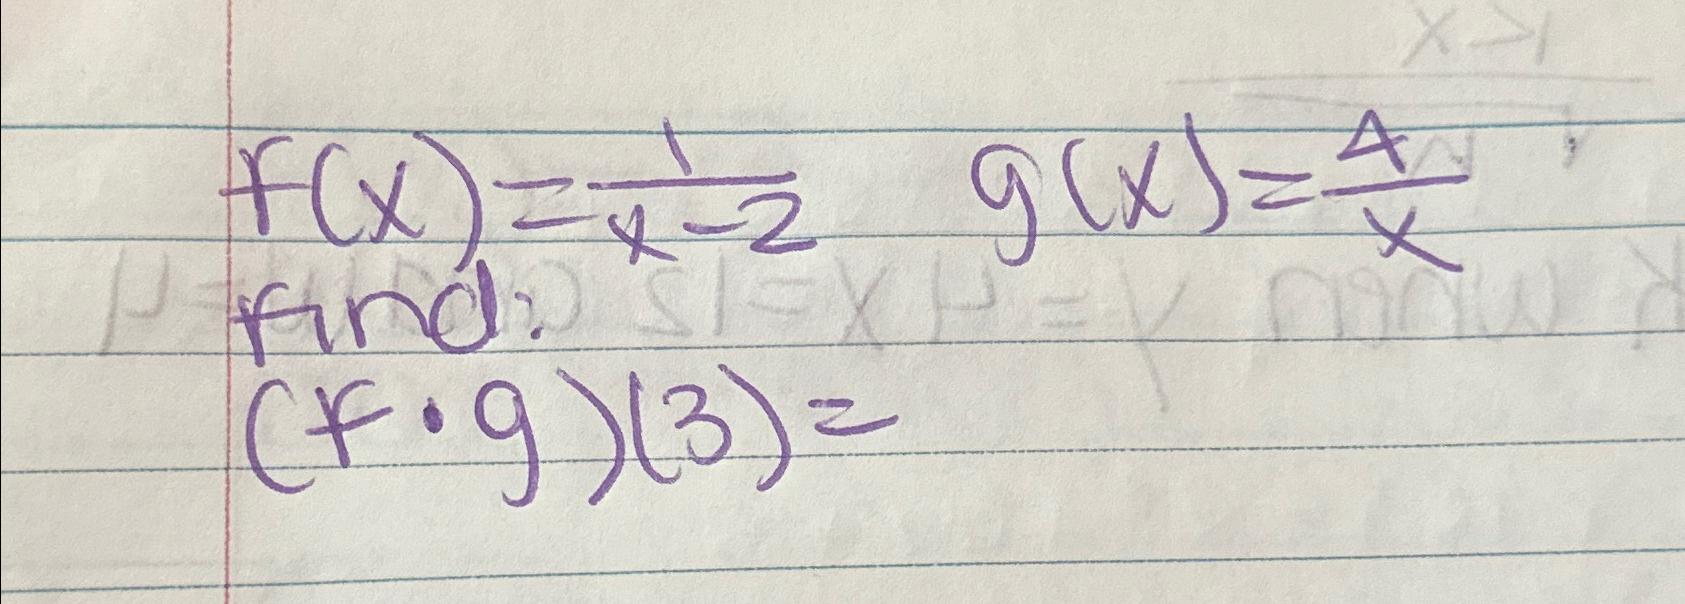 f(x) = 1/(x-2) g(x) = 4/x
find:
(f · g)(3) =